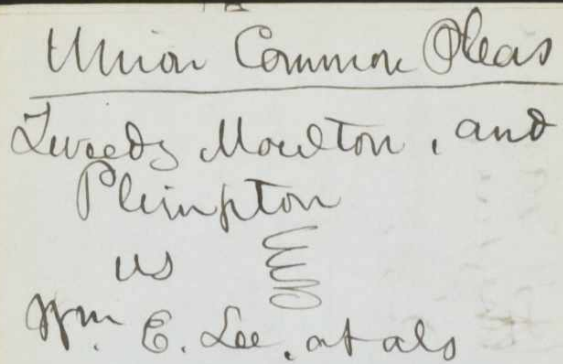 Union Common Pleas
Tweedy Moulton, and
Plimpton
vs
Wm. E. Lee, et als